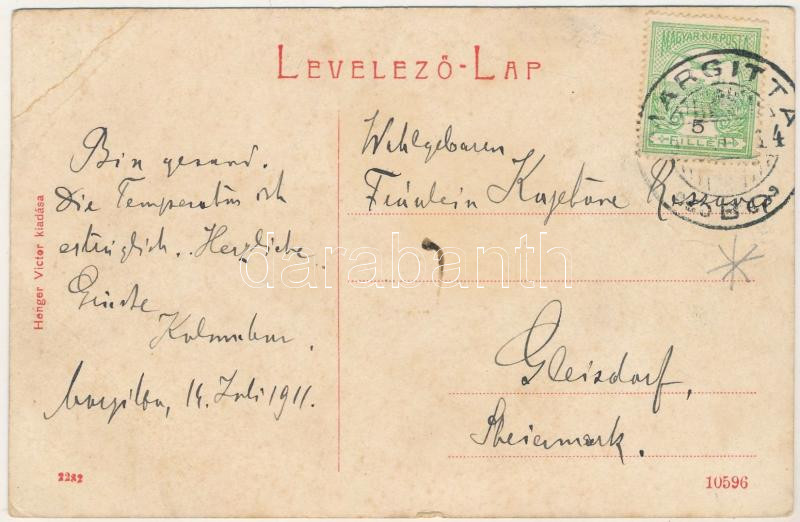 LEVELEZŐ-LAP
MAGYAR KIR. POSTA
5
FILLÉR
MARGITTA
Bin gesund.
Die Temperatur ist
erträglich. Herzliche
Grüße
Kolumban.
Margitta, 14. Juli 1911.
Wohlgeboren
Fräulein
Gleisdorf,
Steiermark.
Henger Victor kiadása
darabanth
2282
10596